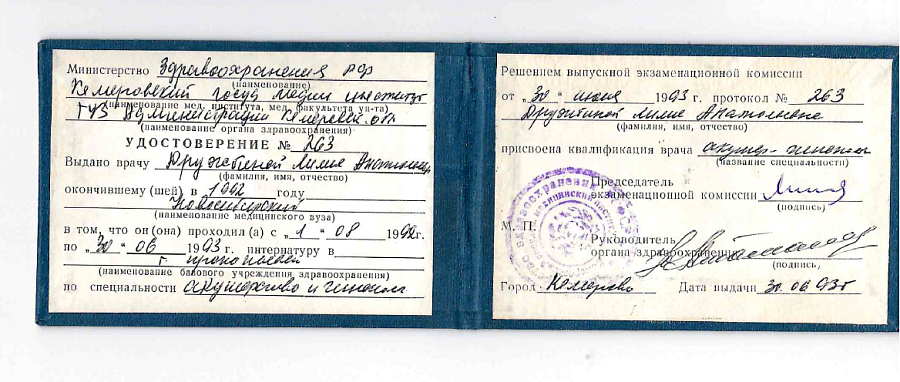 Министерство Здравоохранения РФ
(наименование)
Кемеровский госуд медицин институт
(наименование мед. института, мед. факультета ун-та)
ГУЗ Администрации Кемеровск. обл
(наименование органа здравоохранения)
УДОСТОВЕРЕНИЕ № 263
Выдано врачу Дружининой Лилие Анатольев
(фамилия, имя, отчество)
окончившему (шей) в 1992 году
Новосибирский
(наименование медицинского вуза)
в том, что он (она) проходил (а) с „1" 08 1992г.
по „30" 06 1993 г. интернатуру в
г.
(наименование базового учреждения здравоохранения)
по специальности акушерство и гинекол
Решением выпускной экзаменационной комиссии
от „30" июня 1993 г. протокол № 263
Лилие Анатольевне
(фамилия, имя, отчество)
присвоена квалификация врача акушер-
(название специальности)
Председатель
экзаменационной комиссии
(подпись)
М. П.
Руководитель
органа здравоохранения
(подпись)
Город Кемерово Дата выдачи 30.06.93г